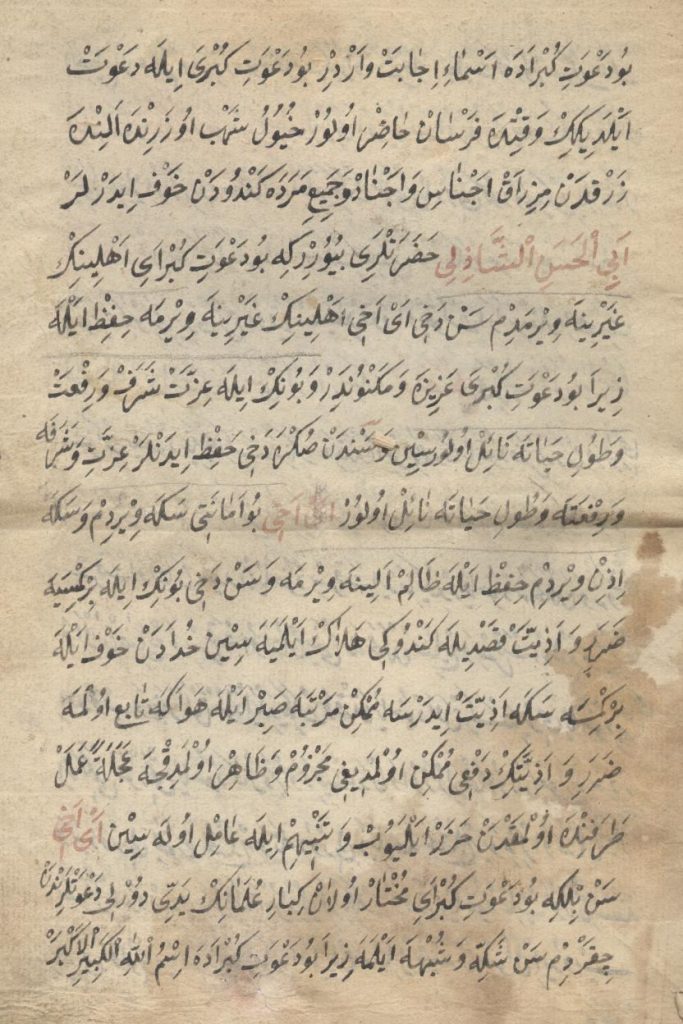 بُودَعْوَتِ كُبْرَادَه اَسْمَاءِ اِجَابَتْ وَارْدِرْ بُودَعْوَتِ كُبْرَى اِيلَه دَعْوَتْ
اَيْلَدِيكِكْ وَقِتْدَه فَرْسَانْ حَاضِرْ اُولُورْ خُيُولُ شَهْبْ اُوزَرِنْدَه اَلِنْدَه
زَرْقدَنْ مِزْرَاقْ اَجْنَاسْ وَاَجْنَادْ وَجَمِيعِ مَرَدَه كَنْدُودَنْ خَوْف اِيدَرْلَرْ
اَبِي اَلْحَسَنِ اَلشَّاذِلِي حَضْرَتْلَرِى بُيُورْرِكِه بُودَعْوَتِ كُبْرَاىِ اَهْلِينِكْ
غَيْرِينَه وِيرْمَدِمْ سَنْ دَخِى اَىْ اَخِى اَهْلِينِكْ غَيْرِينَه وِيرْمَه حِفِظْ اَيْلَه
زِيرَا بُودَعْوَتِ كُبْرَى عَزِيزَه وَمَكْنُونَدِرْ وَبُونِكْ اِيلَه عِزَّتْ شَرَفْ وَرِفْعَتْ
وَطُولِ حَيَاتَه نَائِلْ اُولُورْسِينْ وَسَنْدَنْ صُكْرَه دَخِى حِفِظْ اِيدَنْلَرْ عِزَّتِ وَشَرَفَه
وَرِفْعَتَه وَطُولِ حَيَاتَه نَائِلْ اُولُورْ اَىْ اَخِى بُواَمَانَتِى سَكَه وِيرْدِمْ وَسَكَه
اِذِنْ وِيرْدِمْ حِفِظْ اَيْلَه ظَالِمْ اَلِينَه وِيرْمَه وَسَنْ دَخِى بُونِكْ اِيلَه بِرْكِمْسَيَه
ضَرَرِ وَاَذِيَّتْ قَصْدِيلَه كَنْدُوكِى هَلَاكْ اَيْلَمَيَه سِينْ خُدَادَنْ خَوْف اَيْلَه
بِرْكِمْسَه سَكَه اَذِيَّتْ اِيدَرْسَه مُمْكِنْ مَرْتَبَه صَبِرْ اَيْلَه هَوَاكَه تَابِعْ اُولْمَه
ضَرَرِ وَاَذِيَّتِكْ دَفْعِى مُمْكِنْ اُولْمَدِيغِى مَجْزُومْ وَظَاهِرْ اُولْمَدِقْجَه عَجَلَةً عَمَلْ
طَرَفِنْدَه اُولْمَقْدَنْ حَذَرْ اَيْلَيُوبْ وَتَنْبِيهِمْ اِيلَه عَامِلْ اُولَه سِينْ اَىْ اَخِى
سَنْ بِلْكِلِكِه بُودَعْوَتِ كُبْرَاىِ مُخْتَارْ اُولَانْ كِبَارِ عُلَمَانِكْ يَدِّى دُورْلِى دَعْوَتْلَرِنْدَنْ
چِقَرْدِمْ سَنْ شَكَّه وَشُبْهَه اَيْلَمَه زِيرَا بُودَعْوَتِ كُبْرَادَه اِسْمُ اللهِ الْكَبِيرِ الْاَكْبَرْ